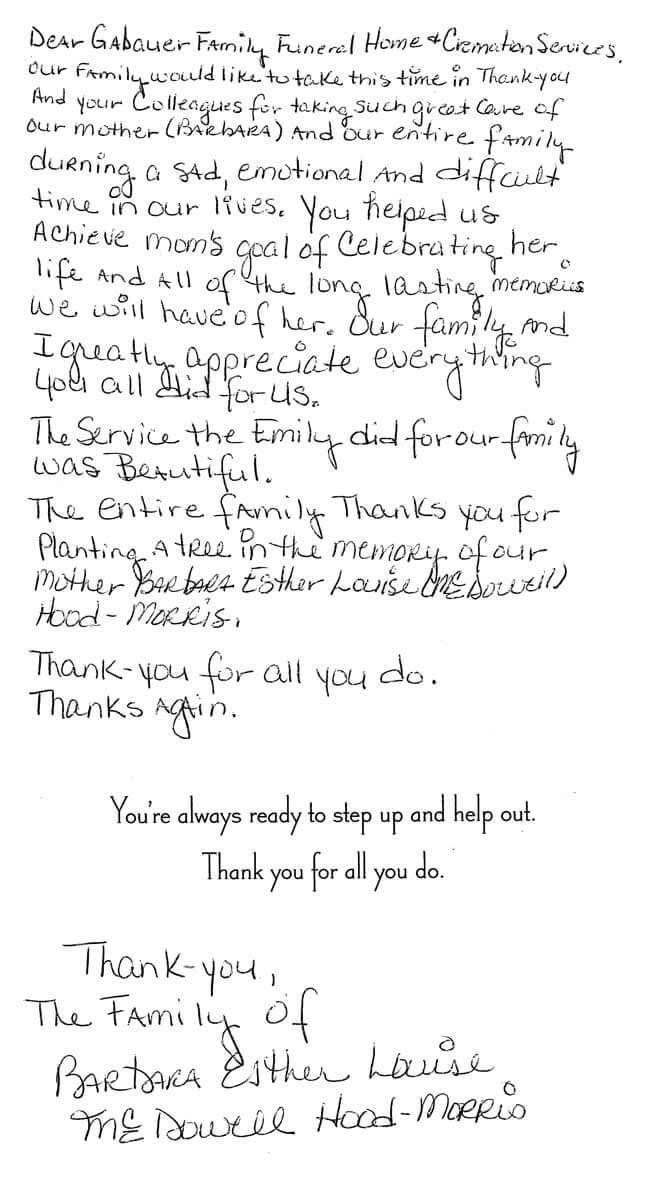 Dear Gabauer Family Funeral Home + Cremation Services,
our Family would like to take this time in Thank-you
And your Colleagues for taking such great Care of
our mother (BARBARA) And our entire family
durning a SAd, emotional And diffcult
time in our lives. You helped us
Achieve mom's goal of Celebrating her
life And All of the long lasting memories
we will have of her. Our family And
I greatly appreciate everything
you all did for us.
The Service the Emily did for our family
was Beautiful.
The entire family Thanks you for
Planting A tree in the memory of our
mother BARBARA Esther Louise (McDowell)
Hood-Morris.
Thank-you for all you do.
Thanks Again.
You're always ready to step up and help out.
Thank you for all you do.
Thank-you,
The Family of
BARBARA Esther Louise
McDowell Hood-Morris